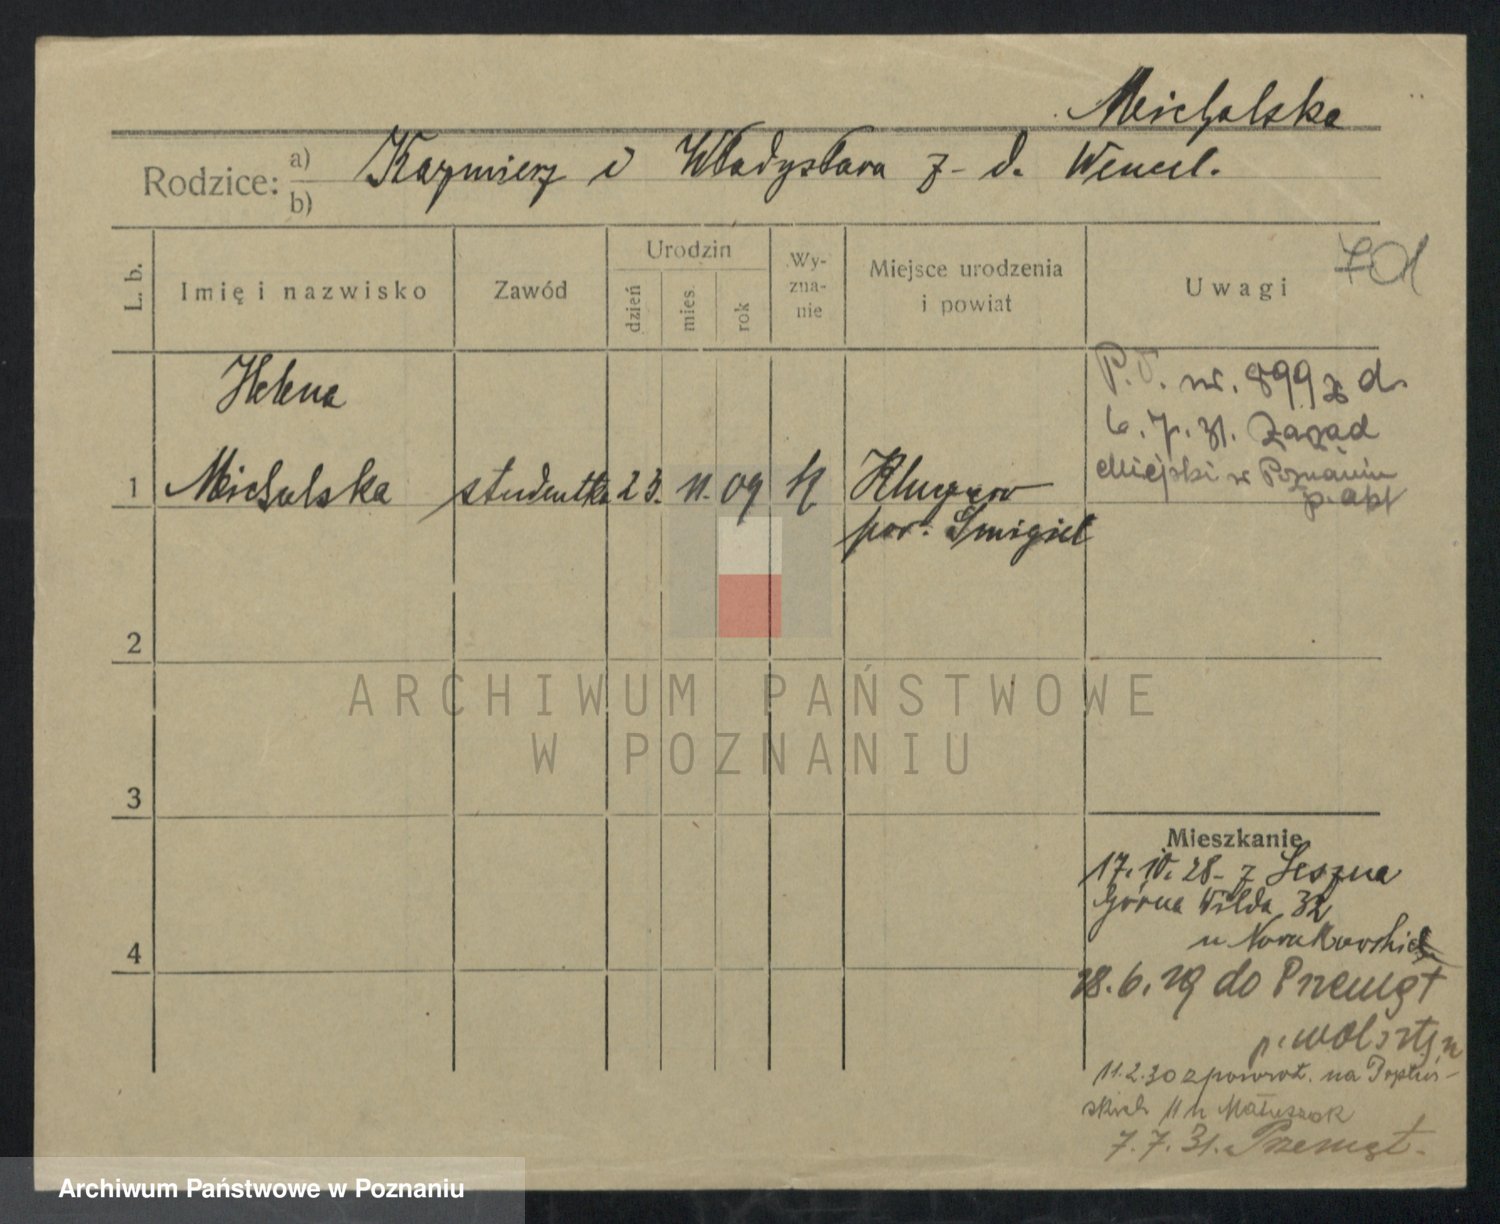 Michalska
Rodzice: a) Kazmierz i Władysława z - d. Wencel.
b)
701
L. b. Imię i nazwisko Zawód Urodzin dzień mies. rok Wy-zna-nie Miejsce urodzenia i powiat Uwagi
Helena
1 Michalska studentka 23. 11. 09 k
pow. Śmigiel
P. O. nr. 899 z d.
6. 7. 31. Zarząd
Miejski w Poznaniu
2
3
4
Mieszkanie
17. IV. 28 - z Leszna
Górna Wilda 32
u Nowakowskich
28. 6. 29 do Przemęt
p. Wolsztyn
11.2.30 z powrot. na
11 u Matuszak
7. 7. 31. Przemęt.
ARCHIWUM PAŃSTWOWE
W POZNANIU
Archiwum Państwowe w Poznaniu